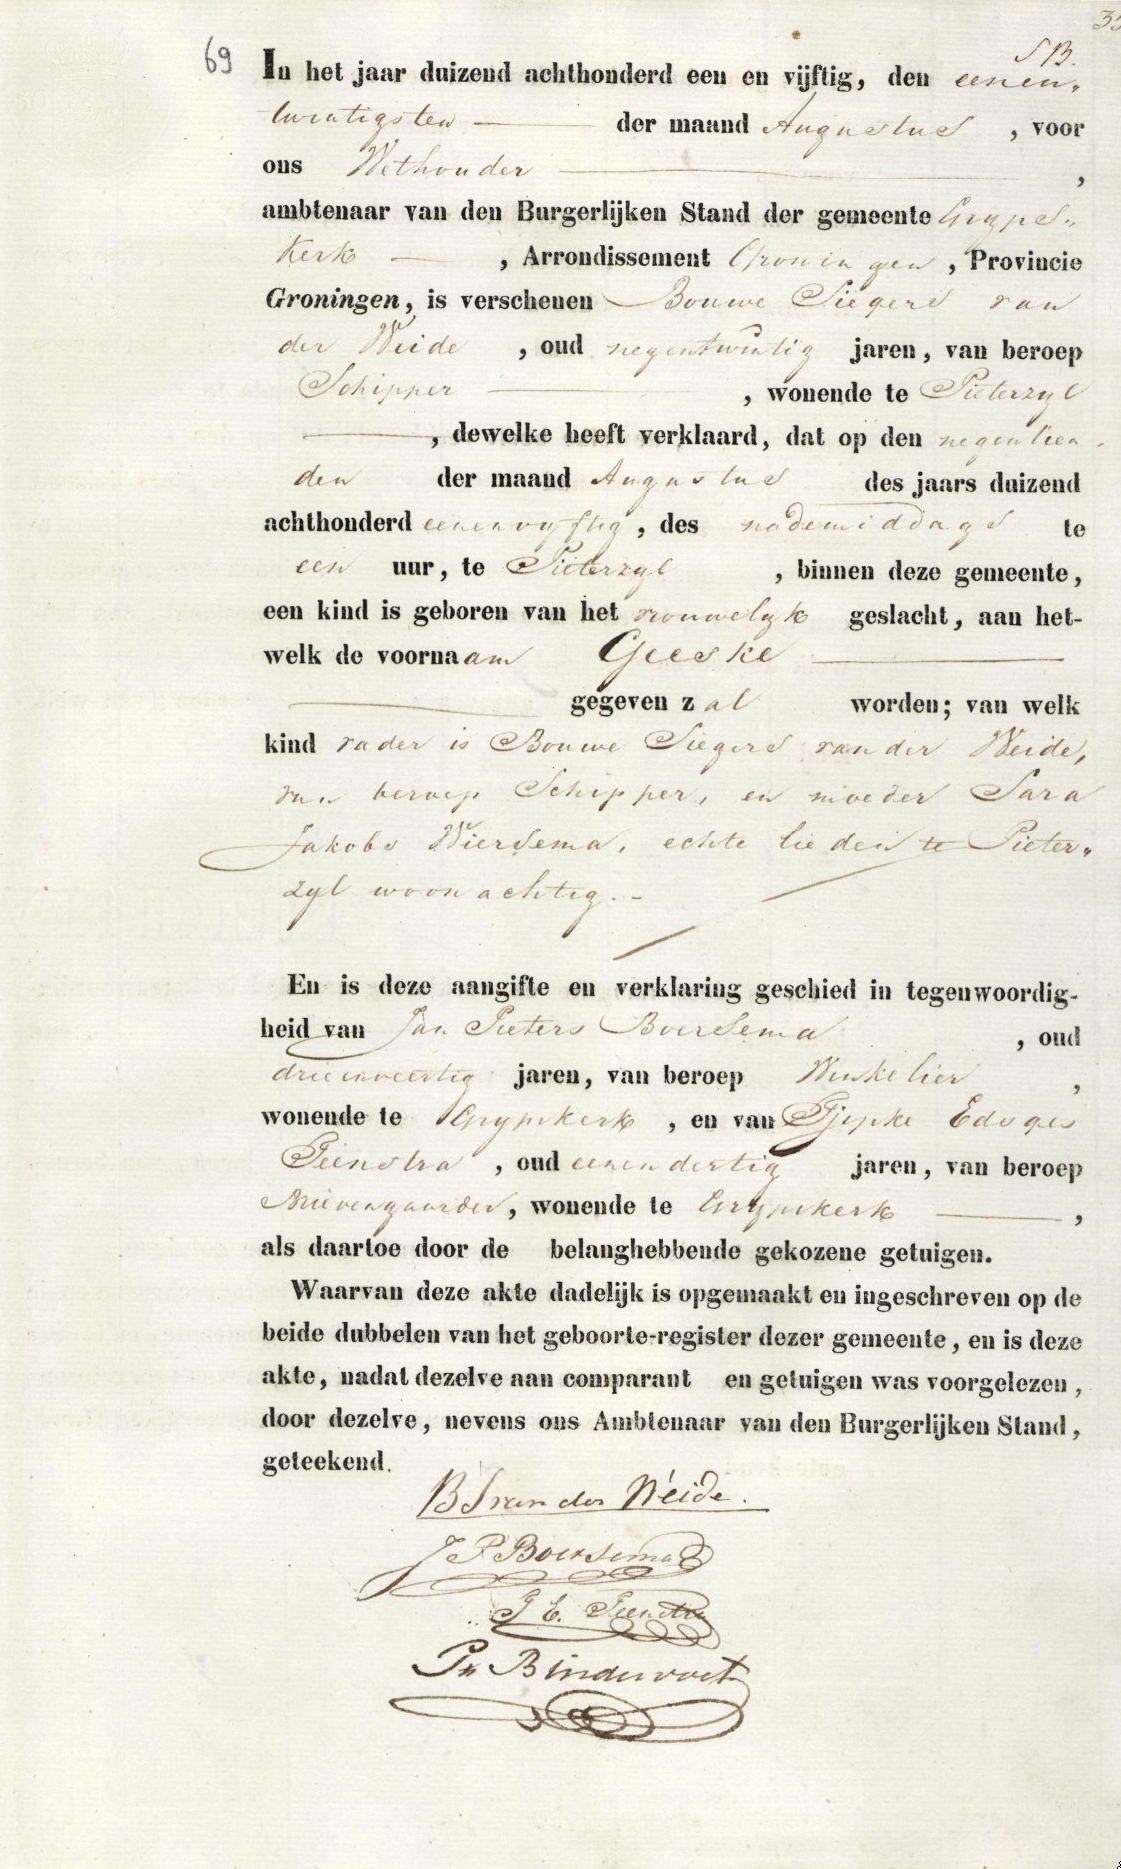 35
69
SB.
In het jaar duizend achthonderd een en vijftig, den eenen„
twintigsten der maand Augustus, voor
ons Wethouder,
ambtenaar van den Burgerlijken Stand der gemeente Gryps„
kerk, Arrondissement Groningen, Provincie
Groningen, is verschenen Bouwe Siegers van
der Weide, oud negentwintig jaren, van beroep
Schipper, wonende te Pieterzyl
, dewelke heeft verklaard, dat op den negentien
den der maand Augustus des jaars duizend
achthonderd eenenvyftig, des nademiddags te
een uur, te Pieterzyl, binnen deze gemeente,
een kind is geboren van het vrouwelyk geslacht, aan het-
welk de voornaam Geeske
gegeven zal worden; van welk
kind vader is Bouwe Siegers van der Weide,
van beroep Schipper, en moeder Sara
Jakobs Wiersema, echte lieden te Pieter„
zyl woonachtig.
En is deze aangifte en verklaring geschied in tegenwoordig-
heid van Jan Pieters Boersema, oud
drieenveertig jaren, van beroep Winkelier,
wonende te Grypskerk, en van Tjipke Edsges
Teenstra, oud eenendertig jaren, van beroep
, wonende te Grypskerk,
als daartoe door de belanghebbende gekozene getuigen.
Waarvan deze akte dadelijk is opgemaakt en ingeschreven op de
beide dubbelen van het geboorte-register dezer gemeente, en is deze
akte, nadat dezelve aan comparant en getuigen was voorgelezen,
door dezelve, nevens ons Ambtenaar van den Burgerlijken Stand,
geteekend.
B S van der Weide.
J P Boersema
T E. Teenstra
Pr Bindervoet